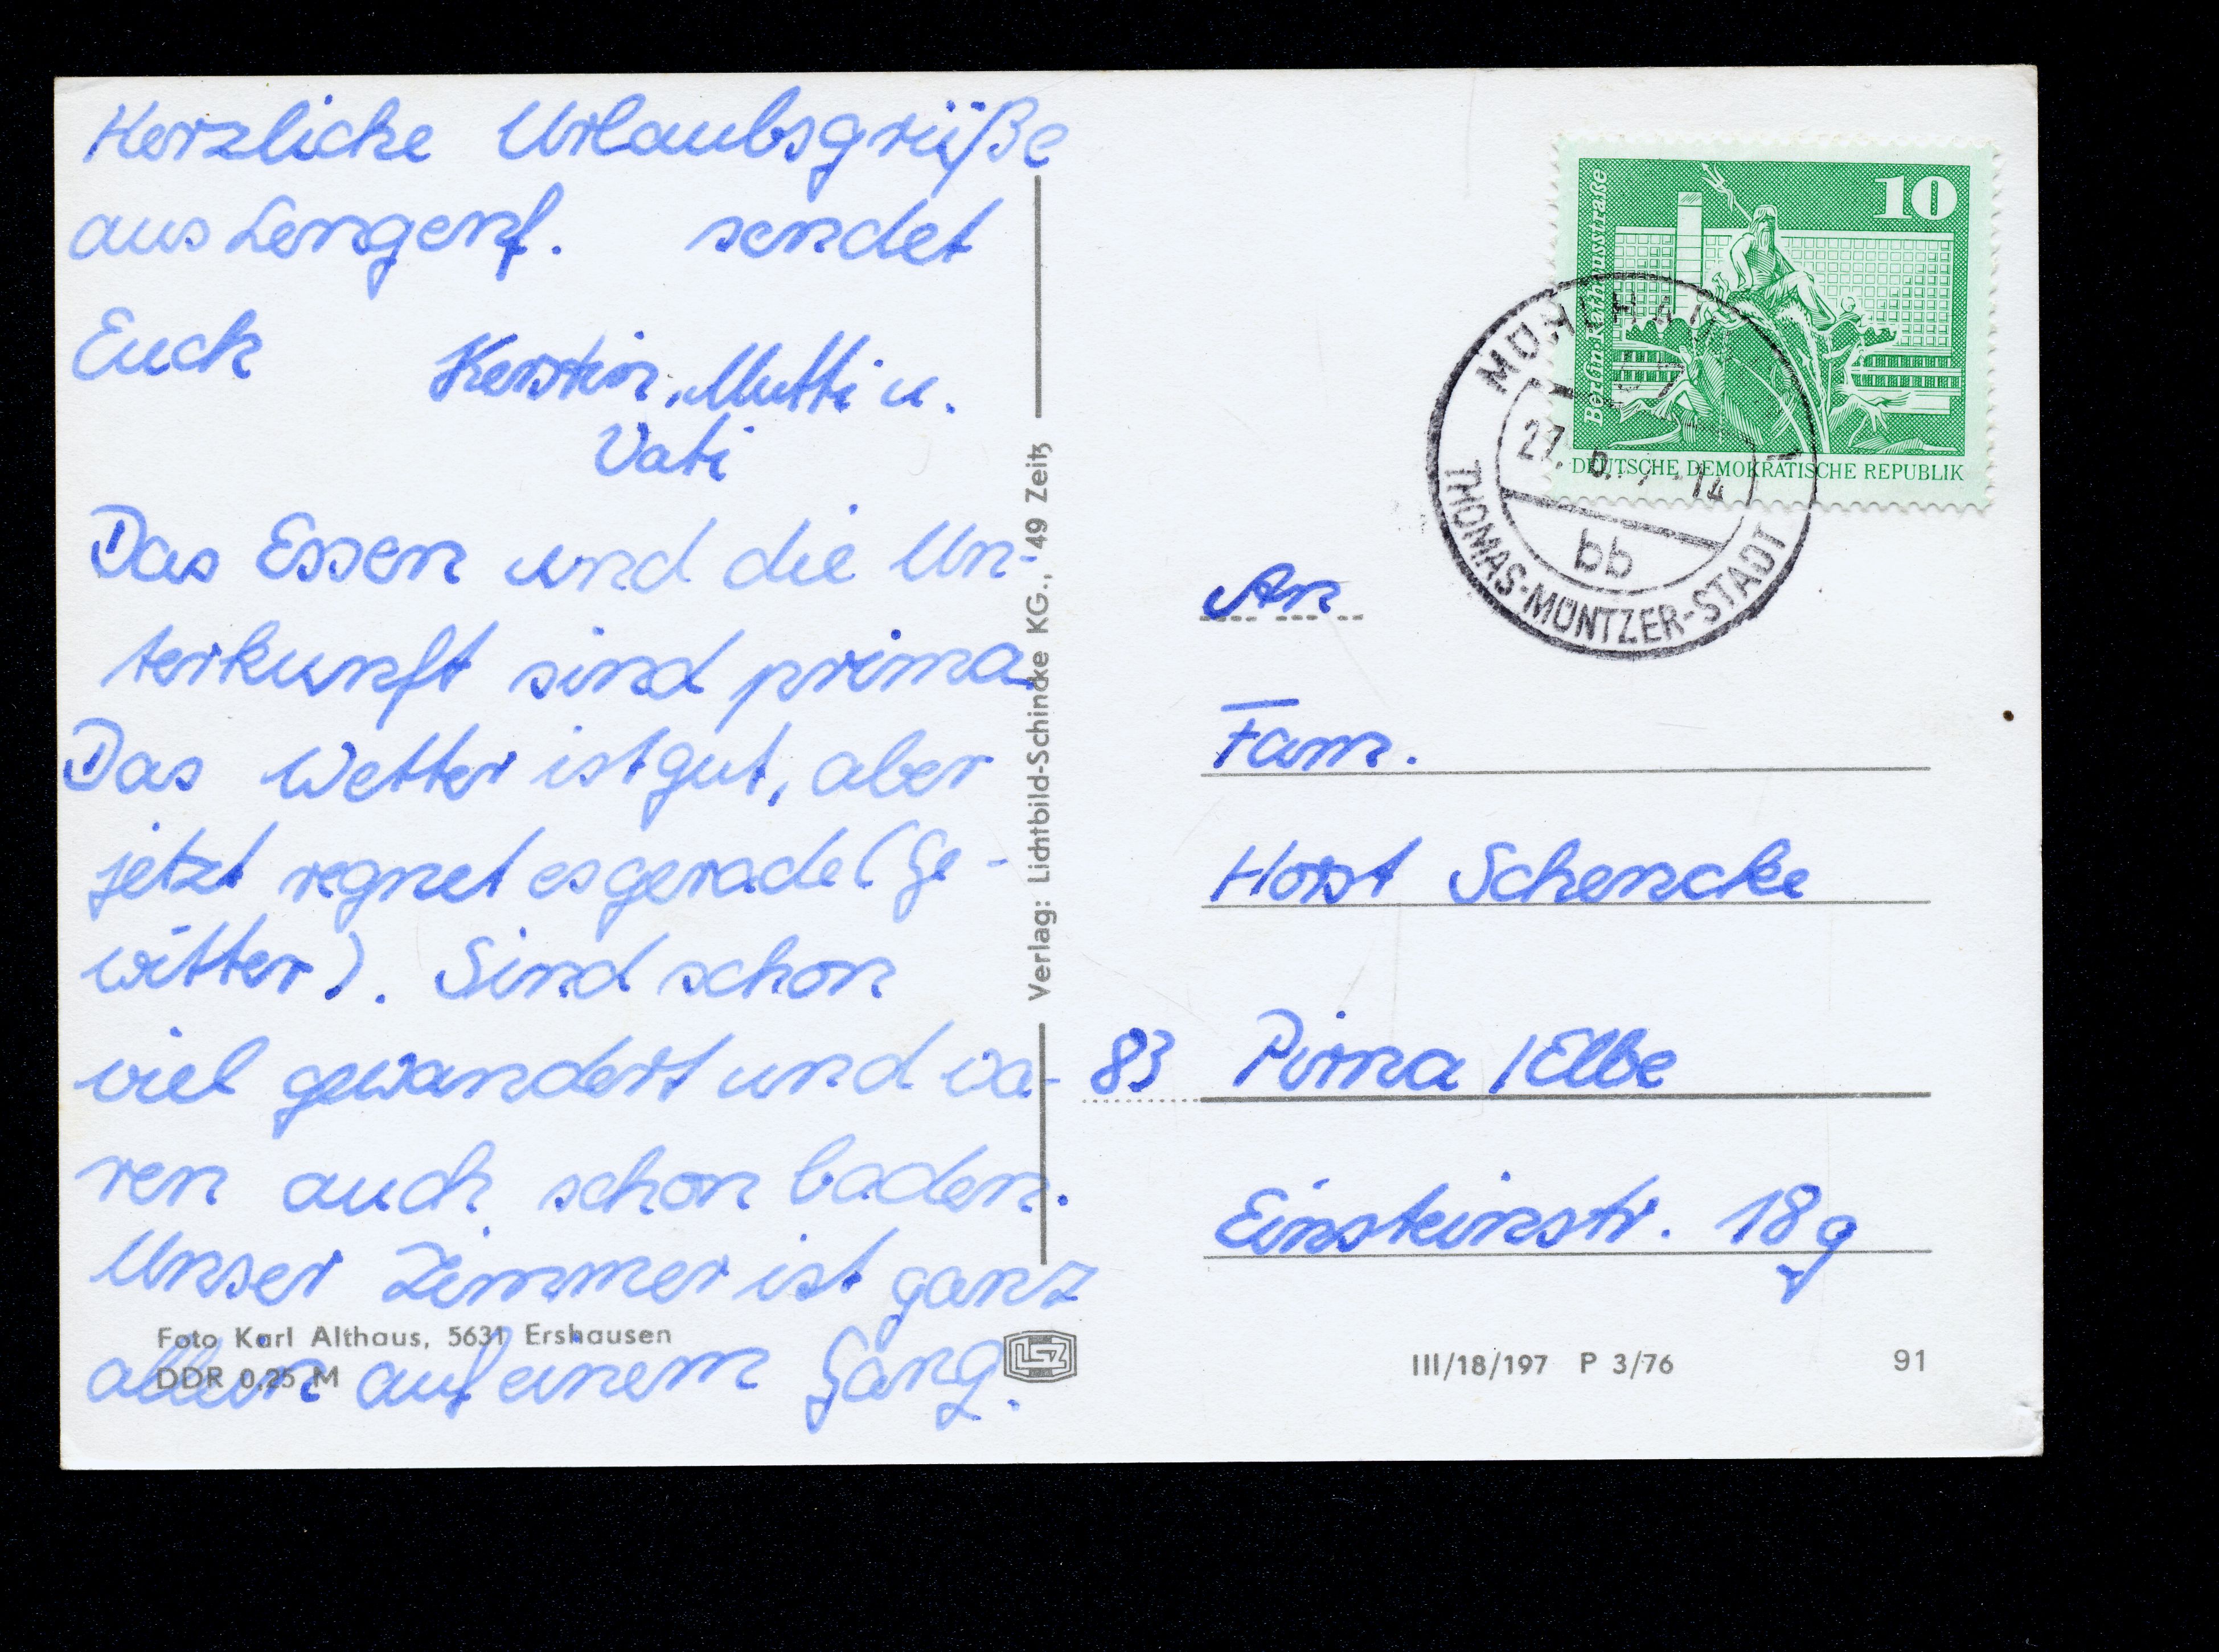 Herzliche Urlaubsgrüße
aus Lengenf. sendet
Euch Kerstin, Mutti u.
Vati
Das Essen und die Un-
terkunft sind prima.
Das Wetter ist gut, aber
jetzt regnet es gerade (Ge-
witter). Sind schon
viel gewandert und wa-
ren auch schon baden.
Unser Zimmer ist ganz
allein auf einem Gang.
Foto Karl Althaus, 5631 Ershausen
DDR 0,25 M
Verlag: Lichtbild-Schincke KG., 49 Zeitz
10
Berlin, Rathausstraße
DEUTSCHE DEMOKRATISCHE REPUBLIK
27.
bb
THOMAS-MÜNTZER-STADT
An
Fam.
Horst Schencke
83 Pirna / Elbe
Einsteinstr. 18g
III/18/197 P 3/76
91